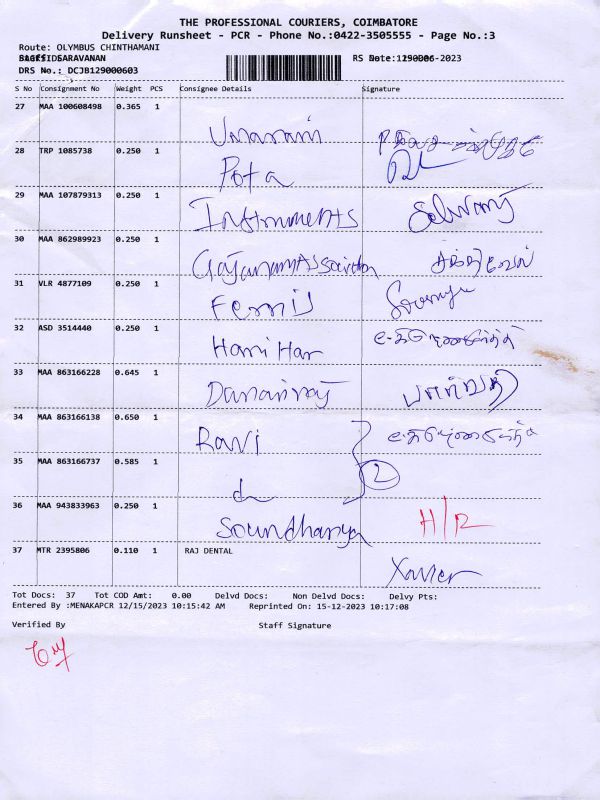 THE PROFESSIONAL COURIERS, COIMBATORE
Delivery Runsheet - PCR - Phone No.:0422-3505555 - Page No.:3
Route: OLYMBUS CHINTHAMANI
SARAVANAN
RS Date: 2023
DRS No.: DCJB129000603
S No Consignment No Weight PCS Consignee Details Signature
27 MAA 100608498 0.365 1
28 TRP 1085738 0.250 1 Pota
29 MAA 107879313 0.250 1 Instruments Selvaraj
30 MAA 862989923 0.250 1 சக்திவேல்
31 VLR 4877109 0.250 1
32 ASD 3514440 0.250 1 Hari Har
33 MAA 863166228 0.645 1
34 MAA 863166138 0.650 1 Ravi
35 MAA 863166737 0.585 1 2
36 MAA 943833963 0.250 1 Soundharya H/R
37 MTR 2395806 0.110 1 RAJ DENTAL Xavier
Tot Docs: 37 Tot COD Amt: 0.00 Delvd Docs: Non Delvd Docs: Delvy Pts:
Entered By :MENAKAPCR 12/15/2023 10:15:42 AM Reprinted On: 15-12-2023 10:17:08
Verified By Staff Signature